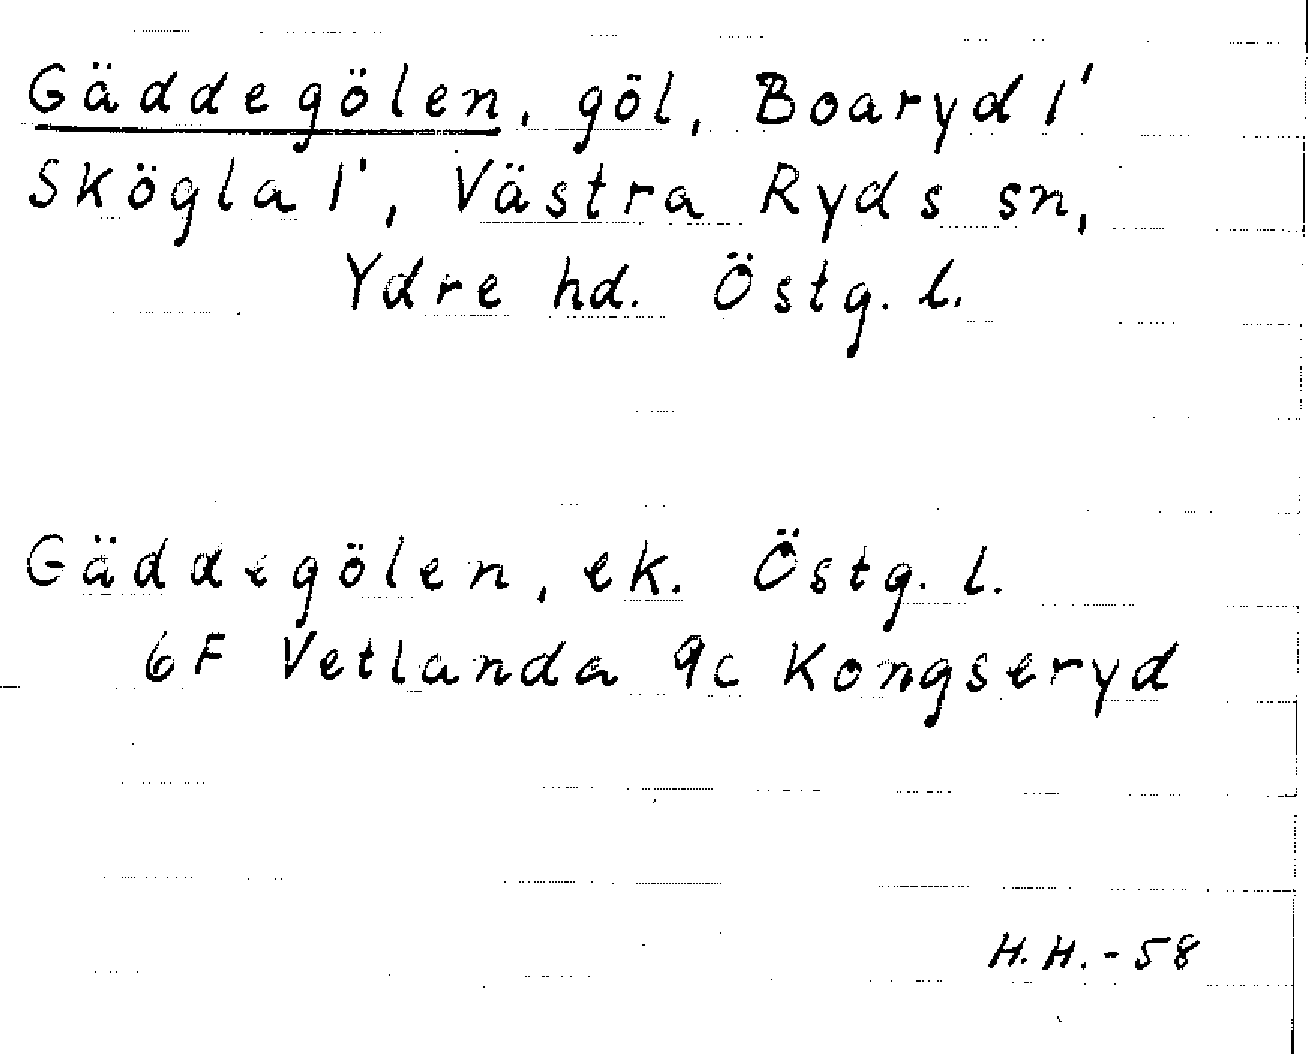 Gäddegölen, göl, Boaryd 1'
Skögla 1', Västra Ryds sn,
Ydre hd. Östg. l.
Gäddegölen, ek. Östg. l.
6F Vetlanda 9c Kongseryd
H.H.-58